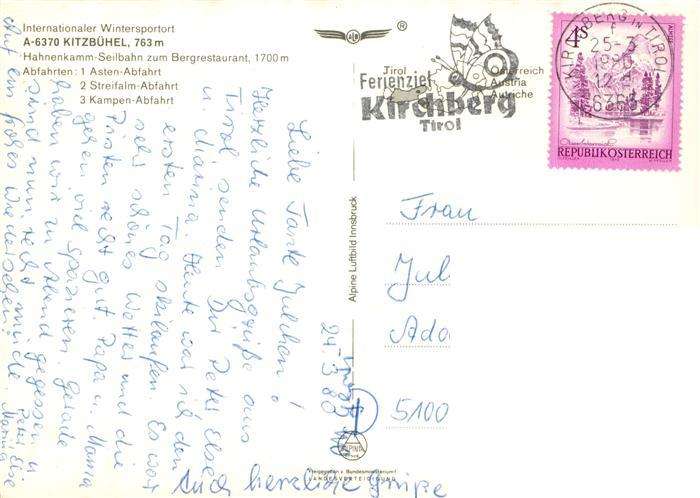 Internationaler Wintersportort
A-6370 KITZBÜHEL, 763 m
Hahnenkamm-Seilbahn zum Bergrestaurant, 1700 m
Abfahrten: 1 Asten-Abfahrt
2 Streifalm-Abfahrt
3 Kampen-Abfahrt
®
Tirol
Ferienziel
Kirchberg
Tirol
Österreich
Austria
Autriche
KIRCHBERG IN TIROL
25-3
1980
12
6365
4 S
REPUBLIK ÖSTERREICH
Alpine Luftbild Innsbruck
24.3.80
Liebe Tante Julchen!
Herzliche Urlaubsgrüße aus
Tirol senden Dir Peter Else
u. Marina. Heute war ich den
ersten Tag skilaufen. Es war
sehr schönes Wetter und die
Pisten recht gut. Papa u. Mama
gehen viel spazieren. Gerade
haben wir zu Abend gegessen u.
sind nun recht müde.
Auf ein frohes Wiedersehen!
Peter Else
Marina
Auch herzliche Grüße
Frau
Jul
Ado
5100
ALPINE
Freigegeben v. Bundesministerium f.
LANDESVERTEIDIGUNG